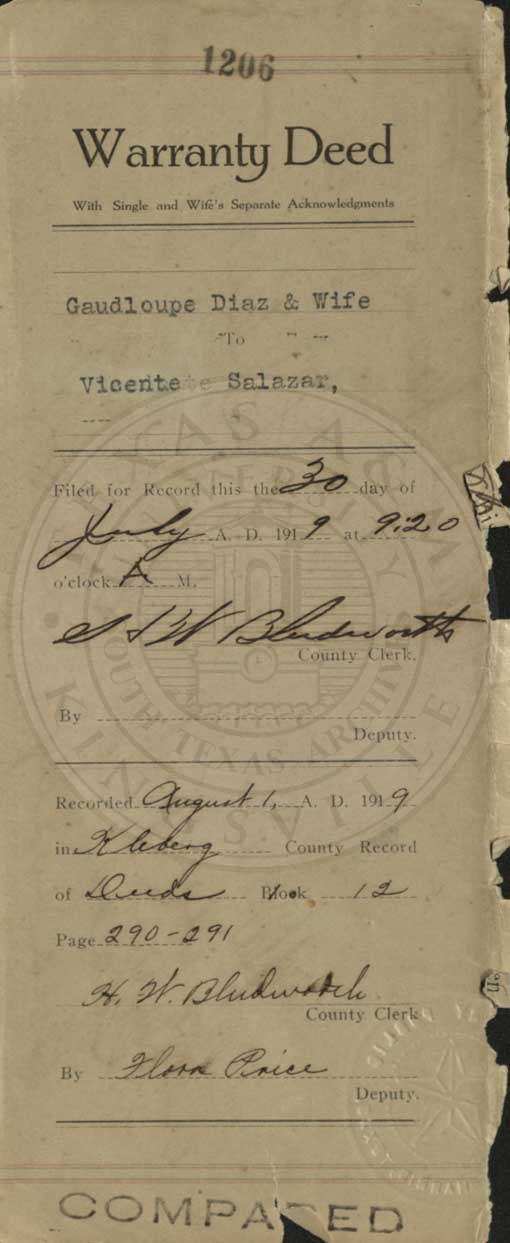 1206
Warranty Deed
With Single and Wife's Separate Acknowledgments
Gaudloupe Diaz & Wife
To
Vicente Salazar,
Filed for Record this the 30 day of
July A. D. 1919 at 9:20
o'clock A M.
H W Bludworth
County Clerk.
By
Deputy.
Recorded August 1, A. D. 1919
in Kleberg County Record
of Deeds Book 12
Page 290-291
H. W. Bludworth
County Clerk
By Flora Price
Deputy.
COMPARED
TEXAS A&M UNIVERSITY
KINGSVILLE
SOUTH TEXAS ARCHIVES